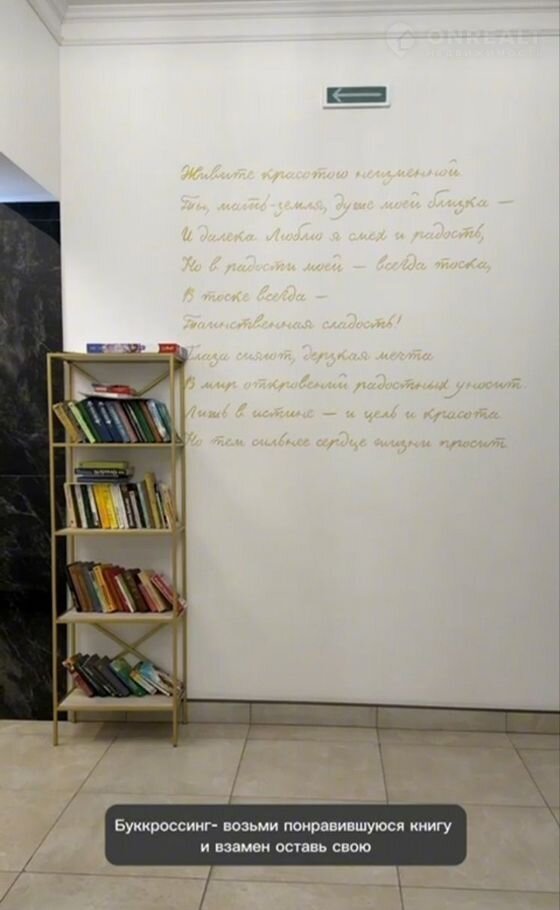 ONREALT
НЕДВИЖИМОСТЬ
Живите красотою неизменной
Ты, мать-земля, душе моей близка —
И далека. Люблю я смех и радость,
Но в радости моей — всегда тоска,
В тоске всегда —
Таинственная сладость!
Глаза сияют, дерзкая мечта
В мир откровений радостных уносит.
Лишь в истине — и цель и красота.
Но тем сильнее сердце жизни просит.
Буккроссинг- возьми понравившуюся книгу
и взамен оставь свою